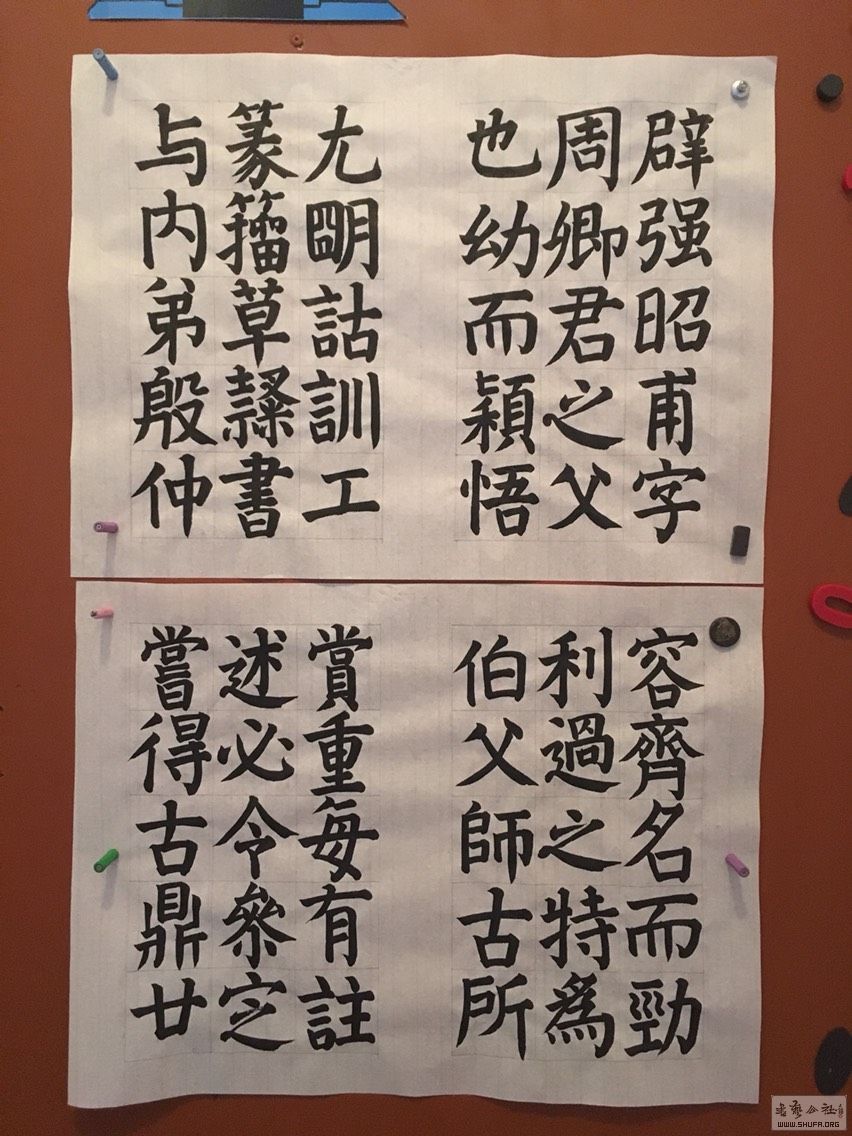 辟强昭甫字
周卿君之父
也幼而穎悟
尤朙詁訓工
篆籀草隸書
与内弟殷仲
容齊名而勁
利過之特爲
伯父師古所
賞重每有註
述必令參定
嘗得古鼎廿
书艺公社
WWW.SHUFA.ORG